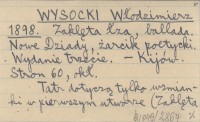 WYSOCKI Włodzimierz
1898. Zaklęta łza, ballada.
Nowe Dziady, żarcik poetycki.
Wydanie trzecie. — Kijów.
Stron 60, okł.
Tatr dotyczą tylko wzmian-
ki w pierwszym utworze (Zaklęta